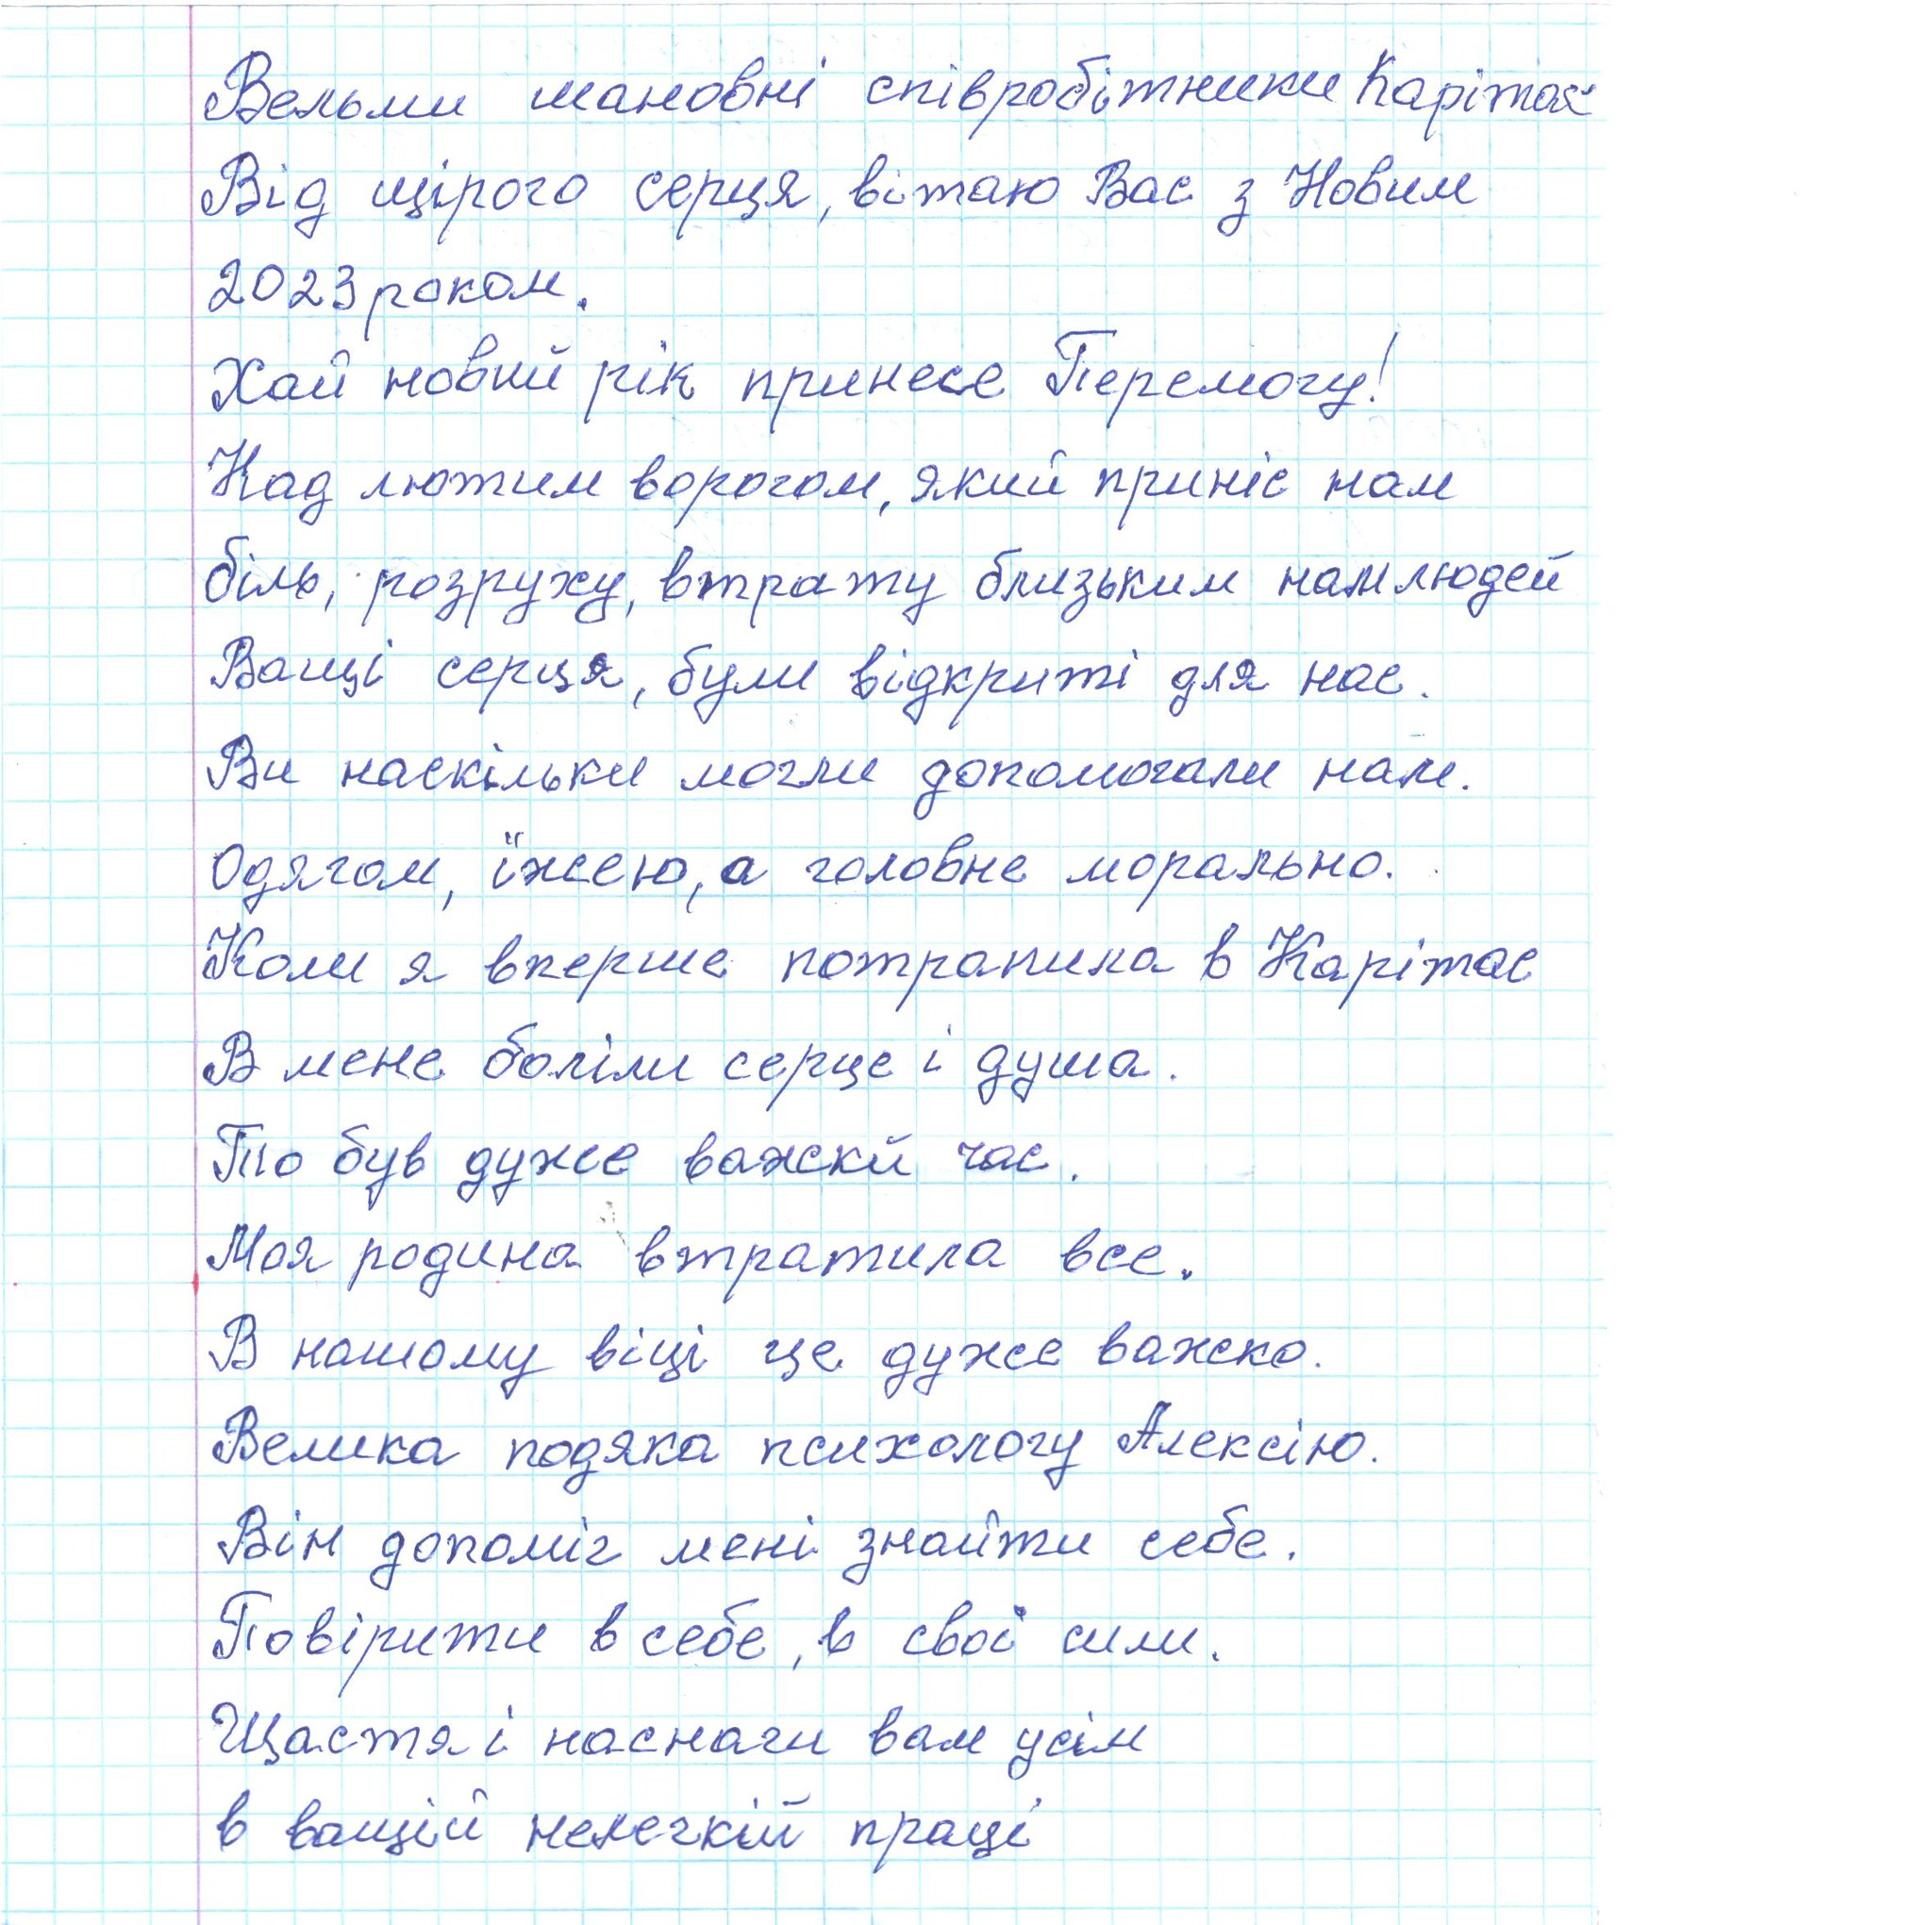 Вельми шановні співробітники Карітас
Від щірого серця, вітаю Вас з Новим
2023 роком.
Хай новий рік принесе Перемогу!
Над лютим ворогом, який приніс нам
біль, розруху, втрату близьким нам людей
Ващі серця, були відкриті для нас.
Ви наскільки могли допомогали нам.
Одягом, їжею, а головне морально.
Коли я вперше потрапила в Карітас
В мене боліли серце і душа.
То був дуже важски час.
Моя родина втратила все.
В нашому віці це дуже важско.
Велика подяка психологу Алексію.
Він допоміг мені знайти себе.
Повірити в себе, в свої сили.
Щастя і наснаги вам усім
в ващій нелегкій праці